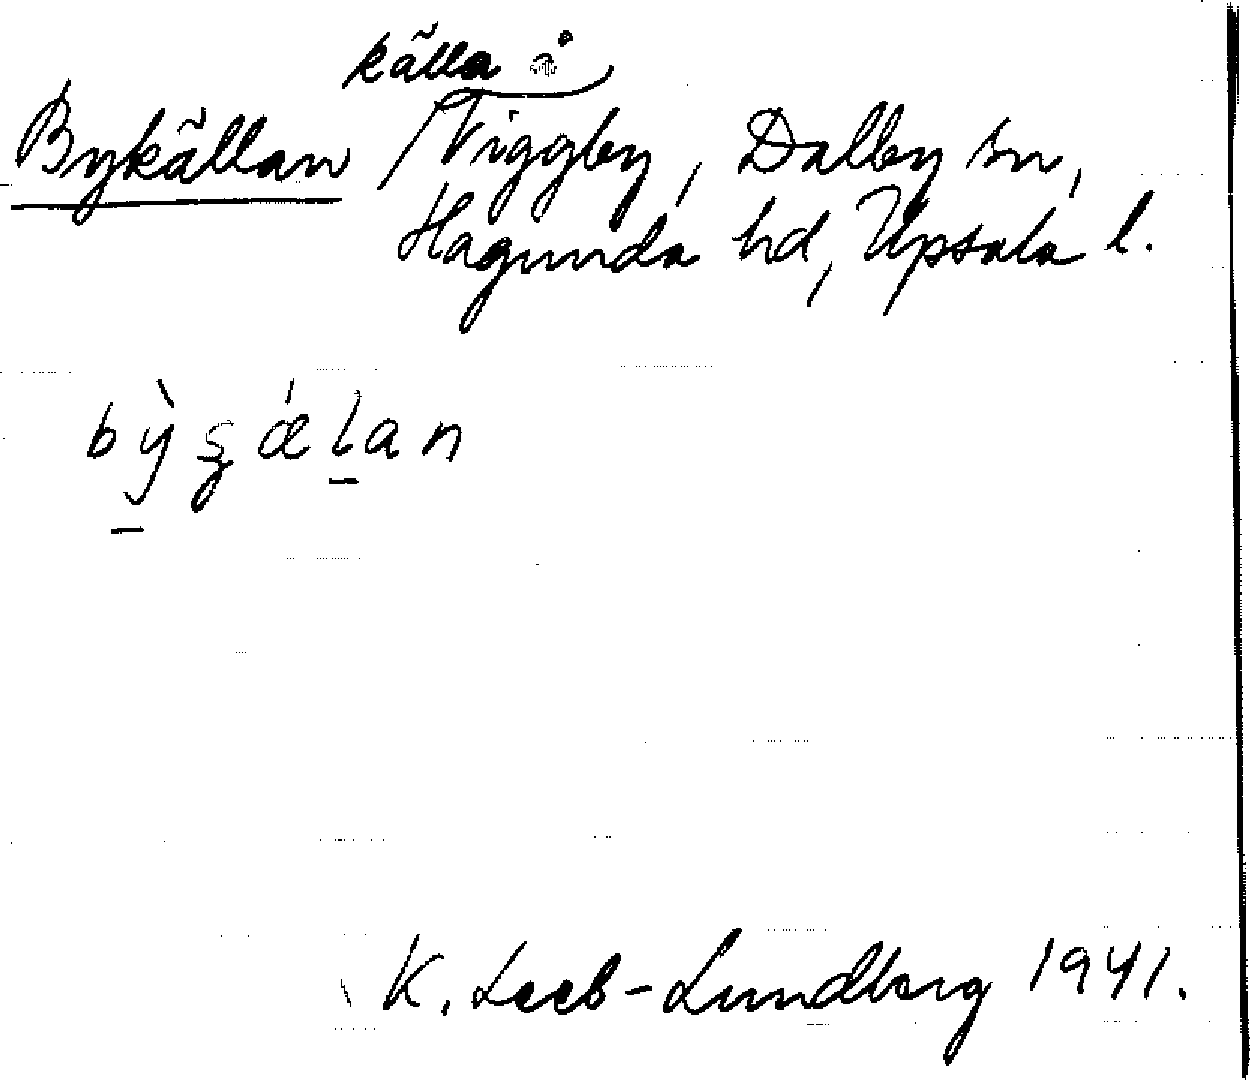 källa å
Bykällan Viggby, Dalby sn,
Hagunda hd, Upsala l.
K. Leeb-Lundberg 1941.